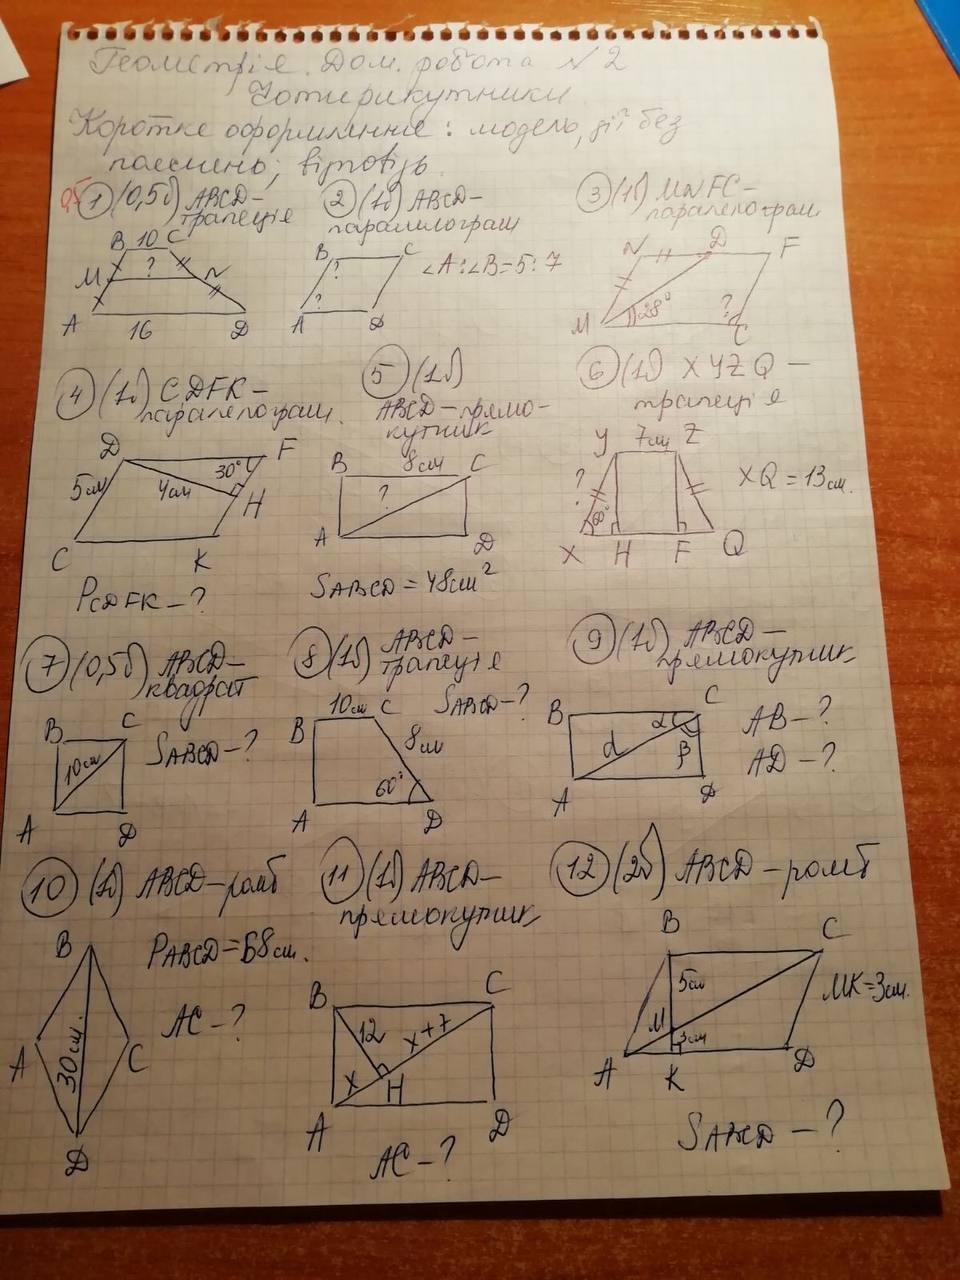 Геометрія. Дом. робота №2
Чотирикутники
Коротке оформлення: модель, дії без
пояснень, відповідь.
0,5
1 (0,5б) ABCD-
трапеція
B 10 C
M ? N
A 16 D
2 (1б) ABCD-
паралелограм
B C
? ∠A:∠B=5:7
?
A D
3 (1б) MNFC-
паралелограм
N D F
28° ?
M C
4 (1б) CDFK-
паралелограм.
D F
30°
5см 4см H
C K
PCDFK-?
5 (1б)
ABCD-прямо-
кутник
B 8см C
?
A D
SABCD=48см²
6 (1б) XYZQ-
трапеція
Y 7см Z
? XQ=13см.
60°
X H F Q
7 (0,5б) ABCD-
квадрат
B C
10см SABCD-?
A D
8 (1б) ABCD-
трапеція
10см C SABCD-?
B
8см
60°
A D
9 (1б) ABCD-
прямокутник
B C AB-?
α
d β AD-?
A D
10 (1б) ABCD-ромб
B PABCD=68см.
AC-?
A 30см. C
D
11 (1б) ABCD-
прямокутник
B C
12 x+7
x H
A D
AC-?
12 (2б) ABCD-ромб
B C
5см MK=3см.
M
3см
A K D
SABCD-?